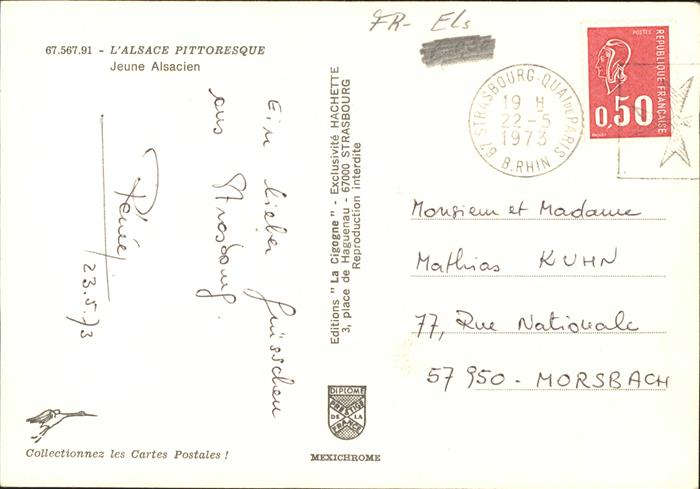 67.567.91 - L'ALSACE PITTORESQUE
Jeune Alsacien
FR- Els
Ein lieber
aus Strasbourg.
23.5.73
Editions "La Cigogne" - Exclusivité HACHETTE
3, place de Haguenau - 67000 STRASBOURG
Reproduction interdite
67 STRASBOURG-QUAI DE PARIS
19 H
22-5
1973
B.RHIN
POSTES
REPUBLIQUE FRANÇAISE
0,50
Monsieur et Madame
Mathias KUHN
77, Rue Nationale
57950 - MORSBACH
DIPLOME
PRESTIGE
DE LA
FRANCE
MEXICHROME
Collectionnez les Cartes Postales !